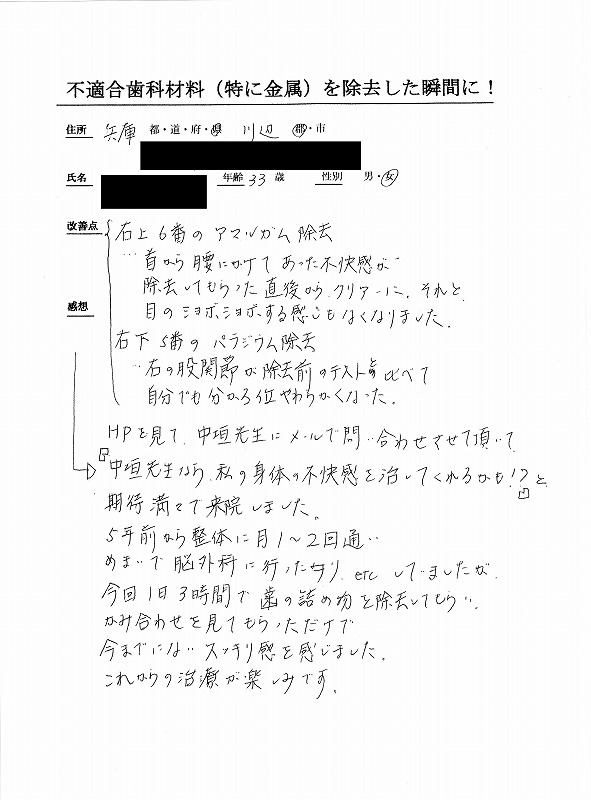 不適合歯科材料（特に金属）を除去した瞬間に！
住所 兵庫 都・道・府・県 川辺 郡・市
氏名 年齢 33 歳 性別 男・女
改善点
右上6番のアマルガム除去
…首から腰にかけてあった不快感が
除去してもらった直後から、クリアーに、それと、
目のショボショボする感じもなくなりました。
感想
右下5番のパラジウム除去
…右の股関節が除去前のテストと比べて
自分でも分かる位やわらかくなった。
HPを見て、中垣先生にメールで問い合わせさせて頂いて、
『中垣先生なら、私の身体の不快感を治してくれるかも!?』と、
期待満々で来院しました。
5年前から整体に月1〜2回通い
めまいで脳外科に行ったり、etc していましたが、
今回1日3時間で歯の詰め物を除去してもらい、
かみ合わせを見てもらっただけで
今までにないスッキリ感を感じました。
これからの治療が楽しみです。